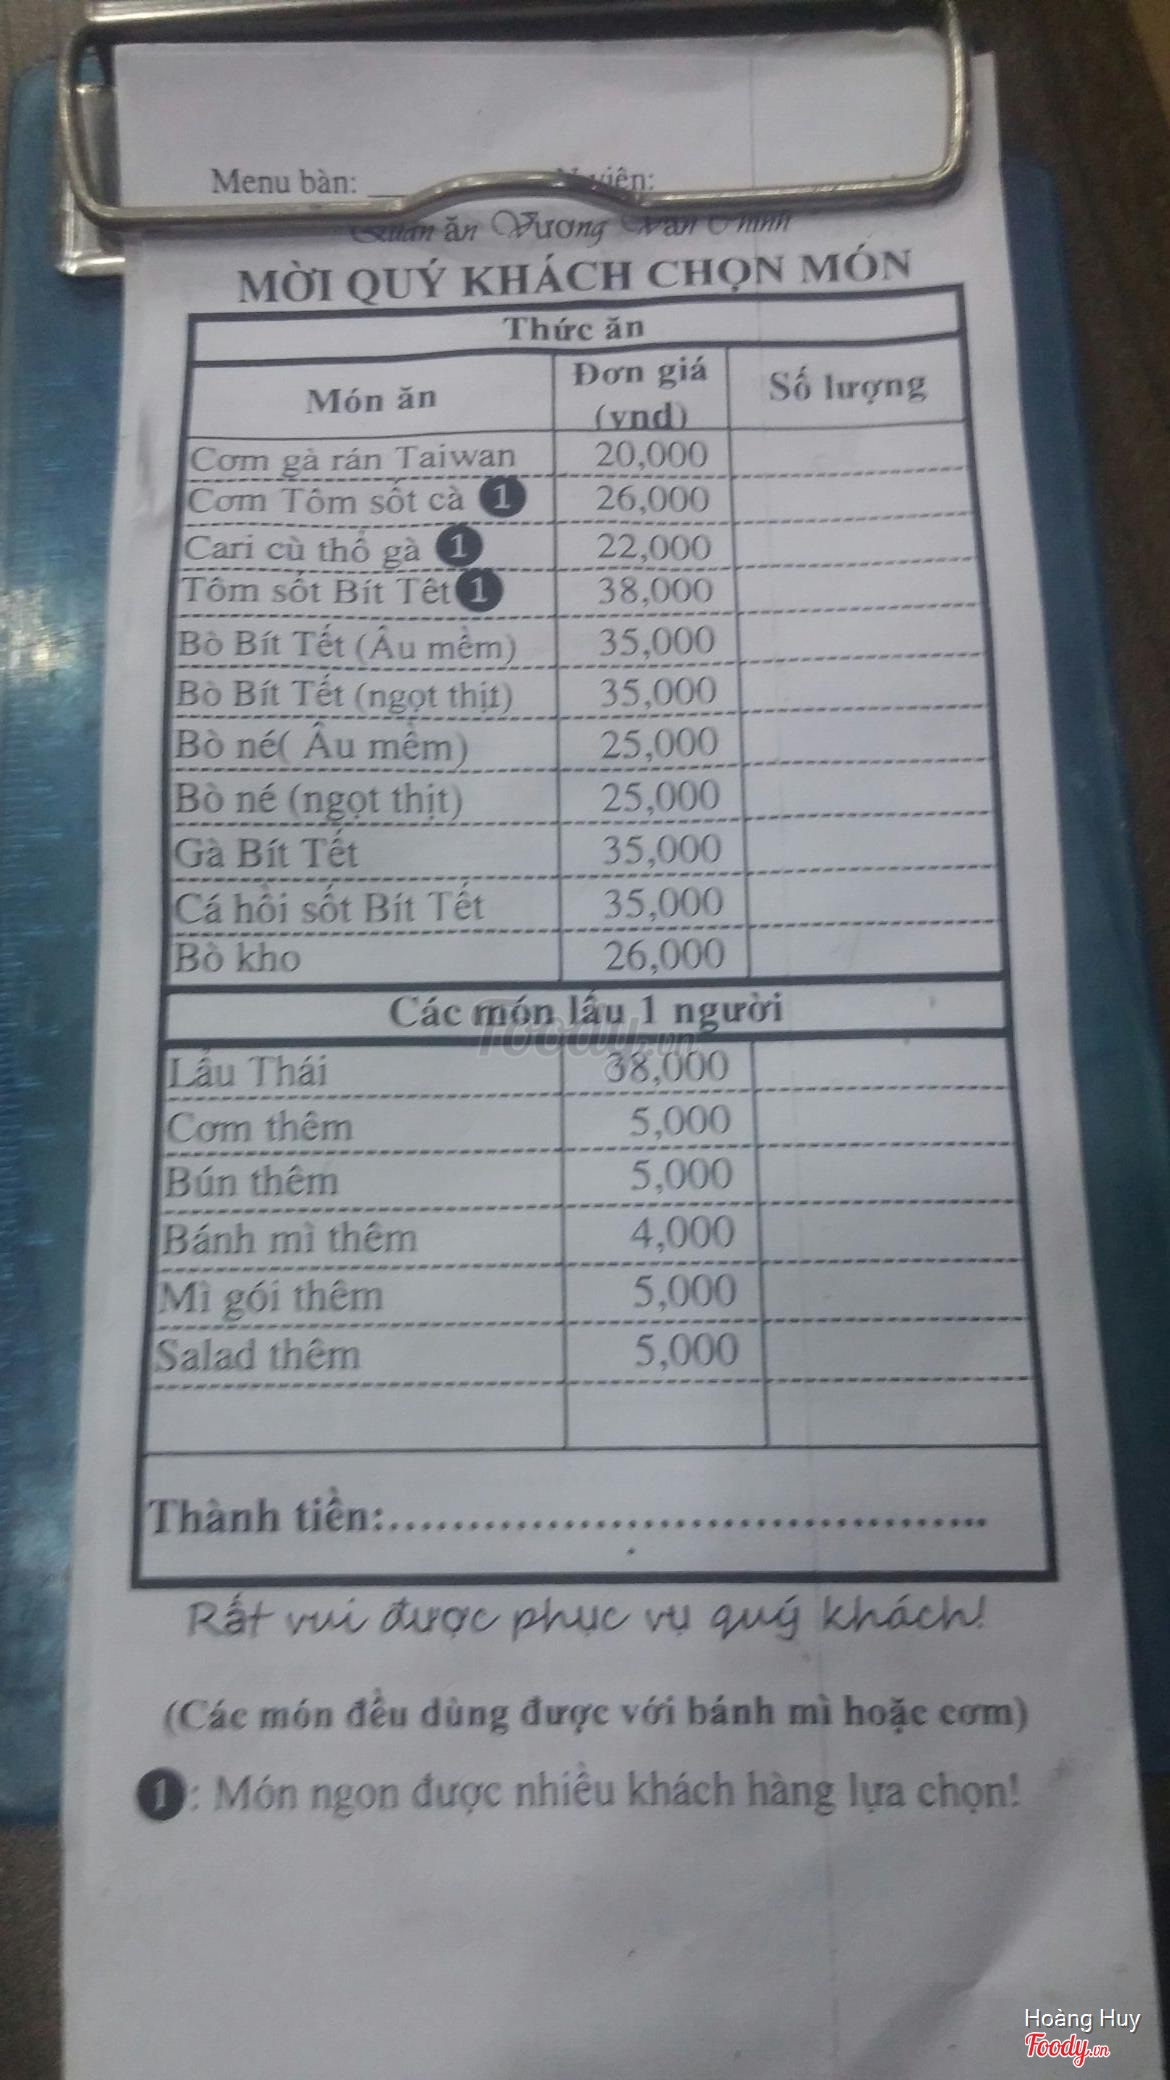 Menu bàn:
viên:
Quán ăn Vương Văn
MỜI QUÝ KHÁCH CHỌN MÓN
Thức ăn
Món ăn Đơn giá (vnd) Số lượng
Cơm gà rán Taiwan 20,000
Cơm Tôm sốt cà 1 26,000
Cari cù thổ gà 1 22,000
Tôm sốt Bít Têt 1 38,000
Bò Bít Tết (Âu mềm) 35,000
Bò Bít Tết (ngọt thịt) 35,000
Bò né( Âu mềm) 25,000
Bò né (ngọt thịt) 25,000
Gà Bít Tết 35,000
Cá hồi sốt Bít Tết 35,000
Bò kho 26,000
Các món lẩu 1 người
Lẩu Thái 38,000
Cơm thêm 5,000
Bún thêm 5,000
Bánh mì thêm 4,000
Mì gói thêm 5,000
Salad thêm 5,000
Thành tiền:
Rất vui được phục vụ quý khách!
(Các món đều dùng được với bánh mì hoặc cơm)
1: Món ngon được nhiều khách hàng lựa chọn!
foody.vn
Hoàng Huy
Foody.vn